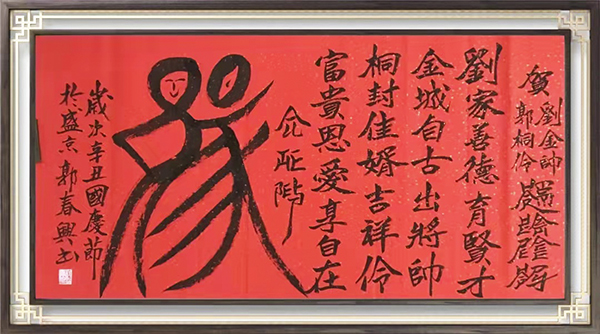 賀劉金帥
郭桐伶
劉家善德育賢才
金城自古出將帥
桐封佳婿吉祥伶
富貴恩愛享自在
歲次辛丑國慶節
於盛京郭春興書